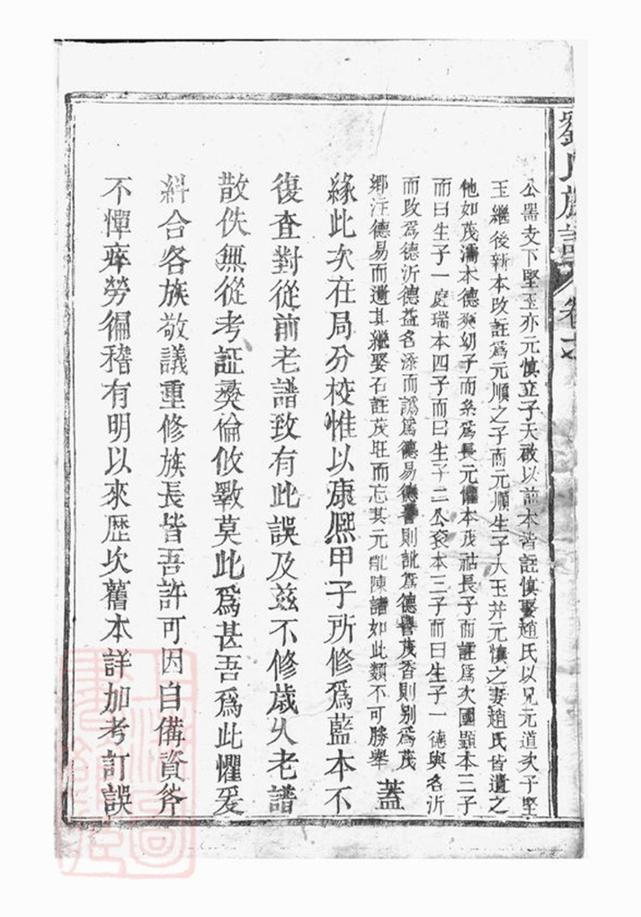 劉氏族譜 卷之
公器支下堅玉亦元慎立子天啟以前本皆註慎娶趙氏以兄元道次子堅
玉繼後新本改註為元順之子而元順生子大玉并元慎之妻趙氏皆遺之
他如茂濡本德爽幼子而系為長元傕本茂祜長子而註為次國顯本三子
而曰生子一庭瑞本四子而曰生子二公袞本三子而曰生子一德與名沂
而改為德沂德益名添而譌為德易德譽則訛為德譽茂香則别為茂
鄉注德易而遺其繼娶石註茂旺而忘其元配陳諸如此類不可勝舉 蓋
緣此次在局分校惟以康熙甲子所修為藍本不
復查對從前老譜致有此誤及兹不修歲久老譜
散佚無從考証彝倫攸斁莫此為甚吾為此懼爰
糾合各族敬議重修族長皆吾許可因自備資斧
不憚瘁勞徧稽有明以來歷次舊本詳加考訂誤